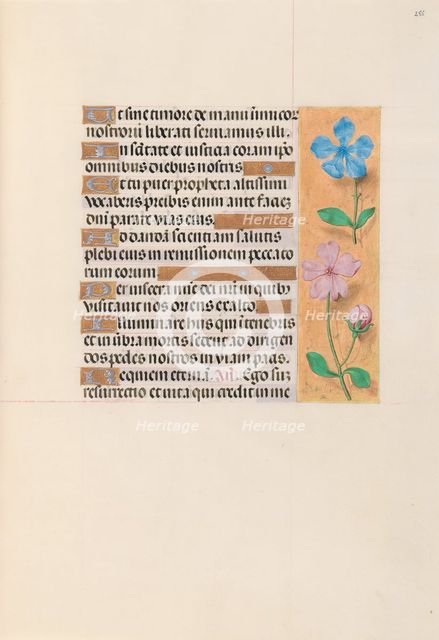 255
Ut sine timore de manu inimicor
nostrorū liberati seruiamus illi.
In sc̄itate et iusticia coram ip̄o
omnibus diebus nostris
Et tu puer propheta altissimi
vocaberis preibis enim ante faciez
dn̄i parare vias eius.
Ad dandā scientiam salutis
plebi eius in remissionem peccato
rum eorum
Per uiscera mīe dei nr̄i in quibꝰ
visitauit nos oriens ex alto.
Illuminare his qui in tenebris
et in vmbra mortis sedent ad dirigen
dos pedes nostros in viam pacis.
Requiem eternā. An̄. Ego suz
resurrectio et vita qui credit in me
Heritage
Heritage
Heritage
Heritage
Heritage
Heritage